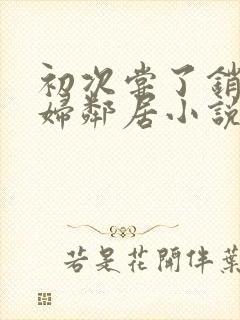 初次常了銷
婦鄰居小説
若是花開伴葉